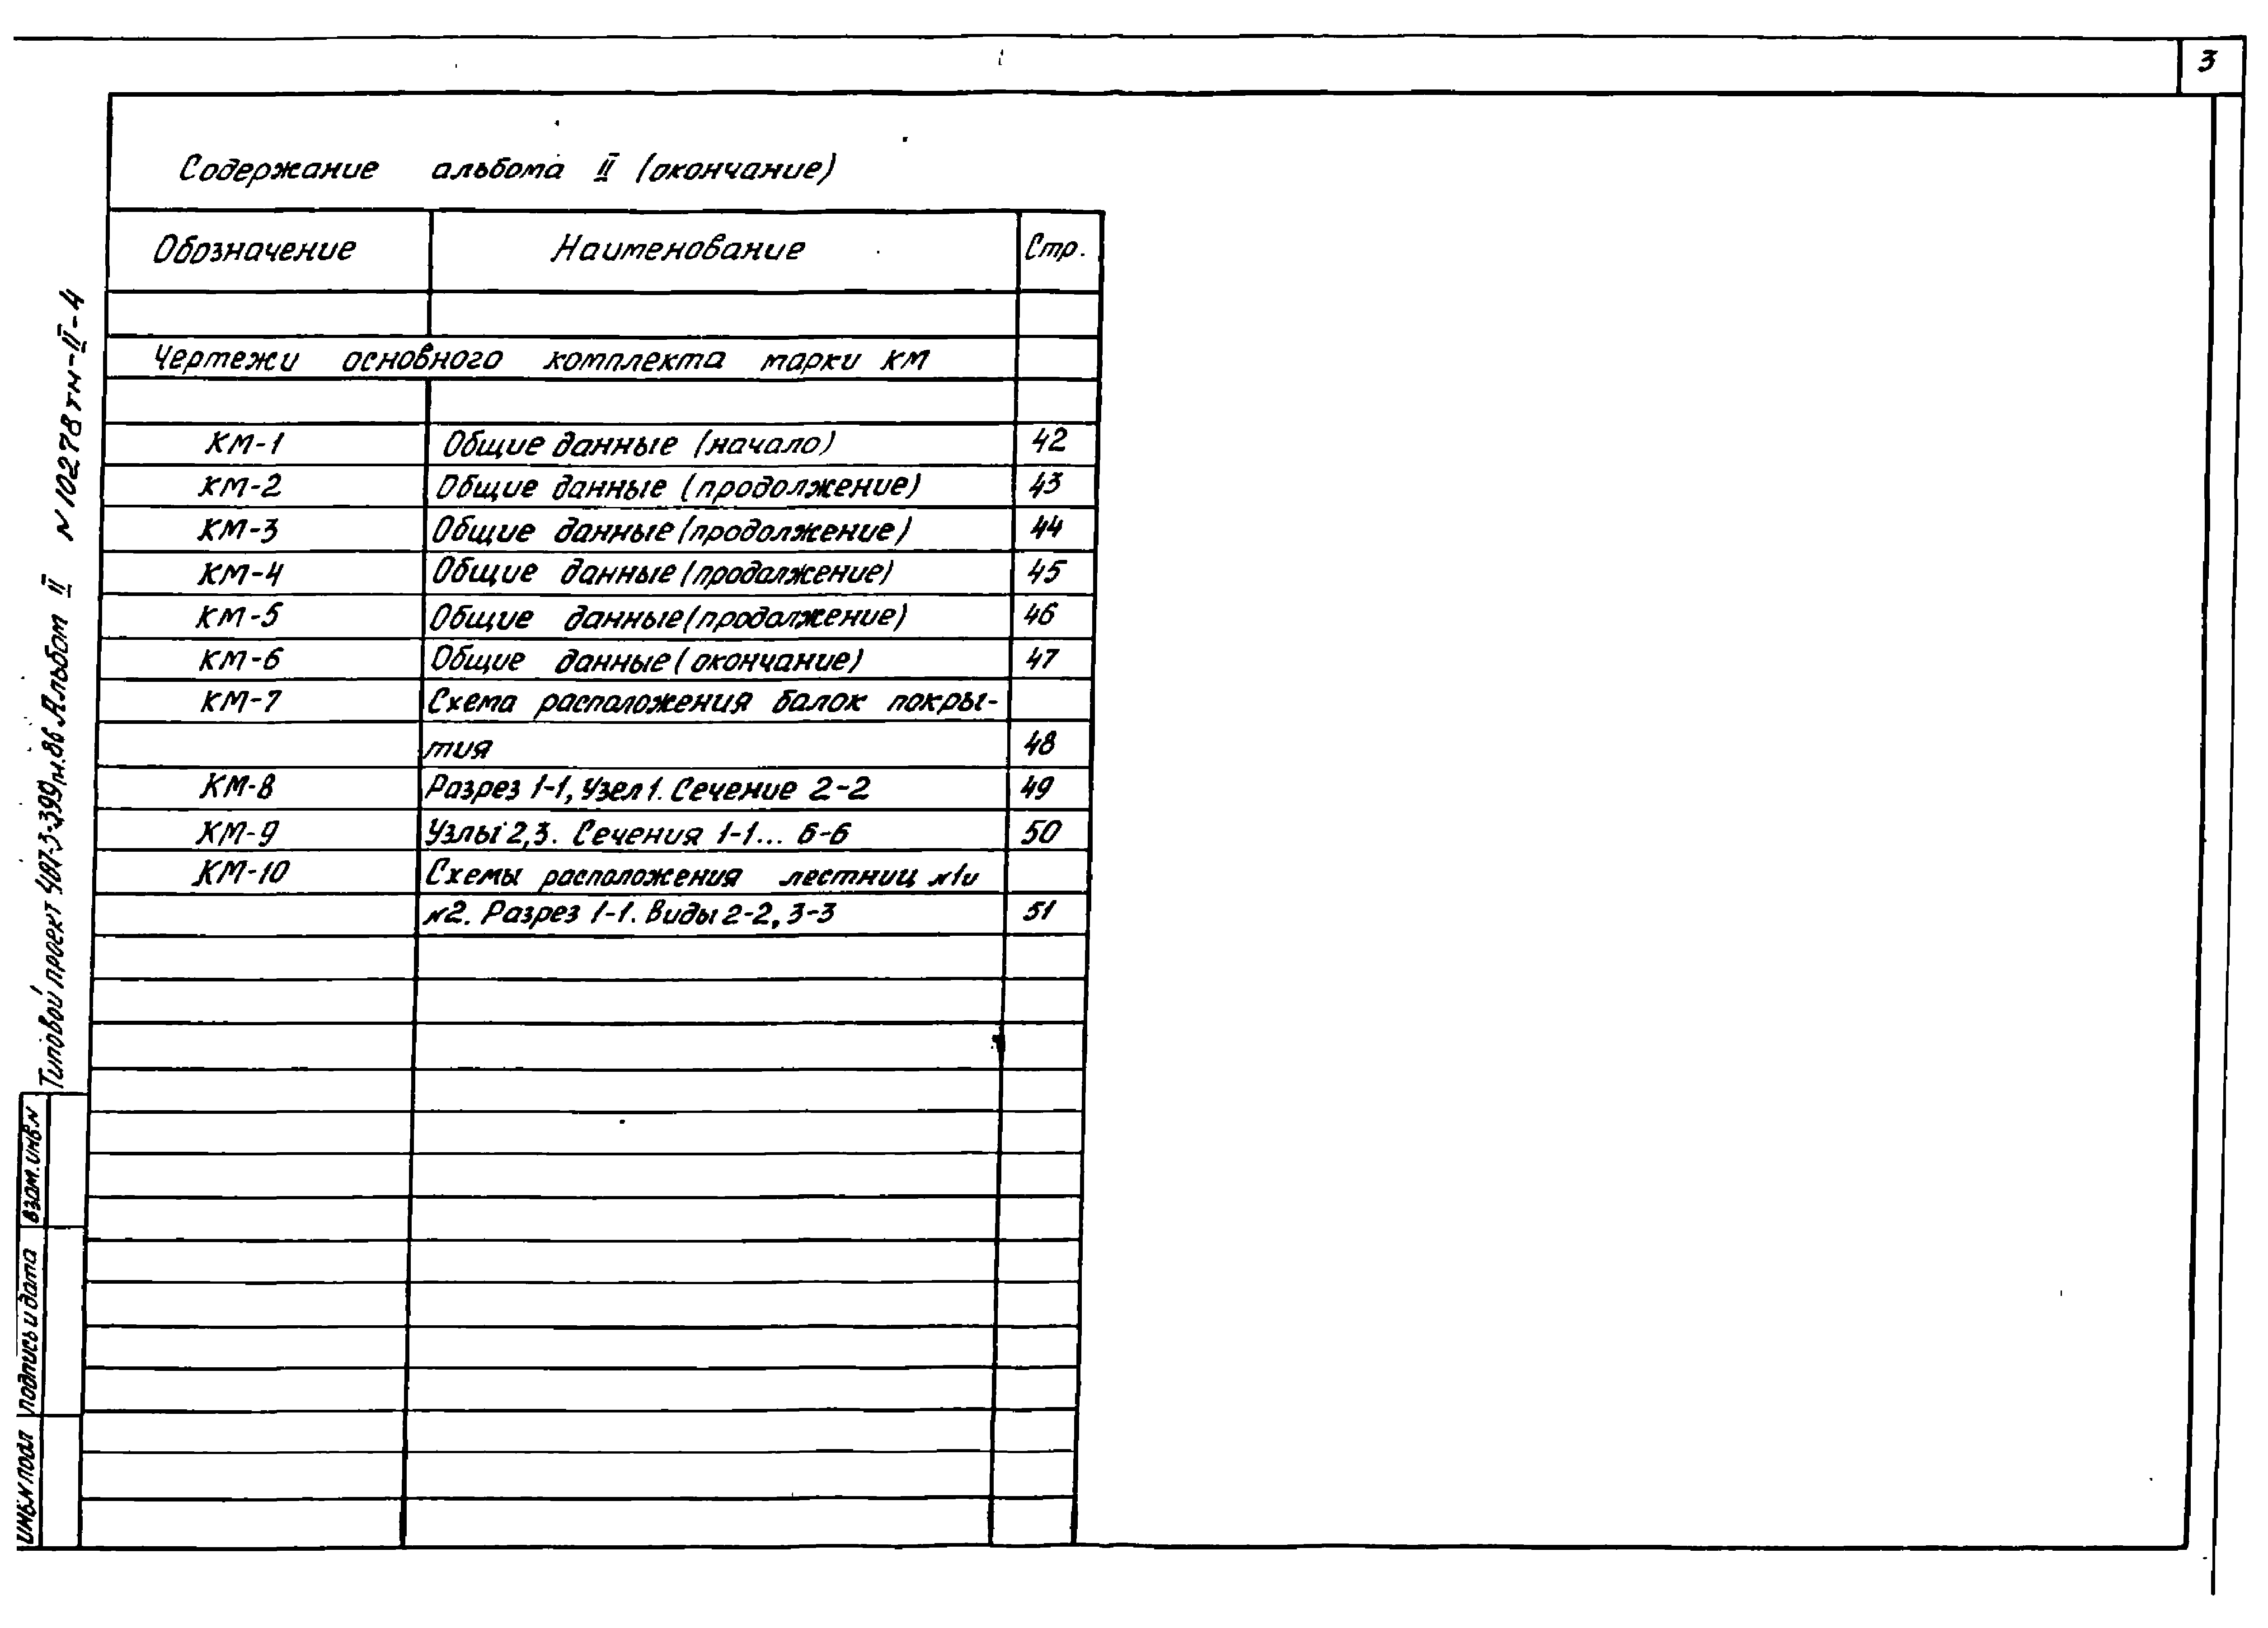 3
Содержание альбома II (окончание)
Обозначение Наименование Стр.
Чертежи основного комплекта марки КМ
КМ-1 Общие данные (начало) 42
КМ-2 Общие данные (продолжение) 43
КМ-3 Общие данные (продолжение) 44
КМ-4 Общие данные (продолжение) 45
КМ-5 Общие данные (продолжение) 46
КМ-6 Общие данные (окончание) 47
КМ-7 Схема расположения балок покры-
тия 48
КМ-8 Разрез 1-1, Узел 1. Сечение 2-2 49
КМ-9 Узлы 2,3. Сечения 1-1... 6-6 50
КМ-10 Схемы расположения лестниц №1 и
№2. Разрез 1-1. Виды 2-2, 3-3 51
Типовой проект Альбом II N10278тм-II-4
Взам. инв.N
Подпись и дата
Инв.N подл